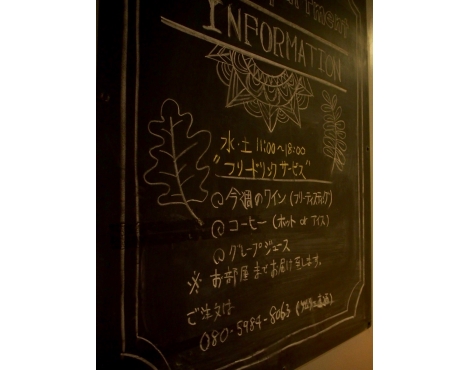 INFORMATION
水・土 11:00~18:00
"フリードリンクサービス"
今週のワイン (フリーティスティング)
コーヒー (ホット or アイス)
グレープジュース
※ お部屋までお届け致します。
ご注文は
080-5984-8063